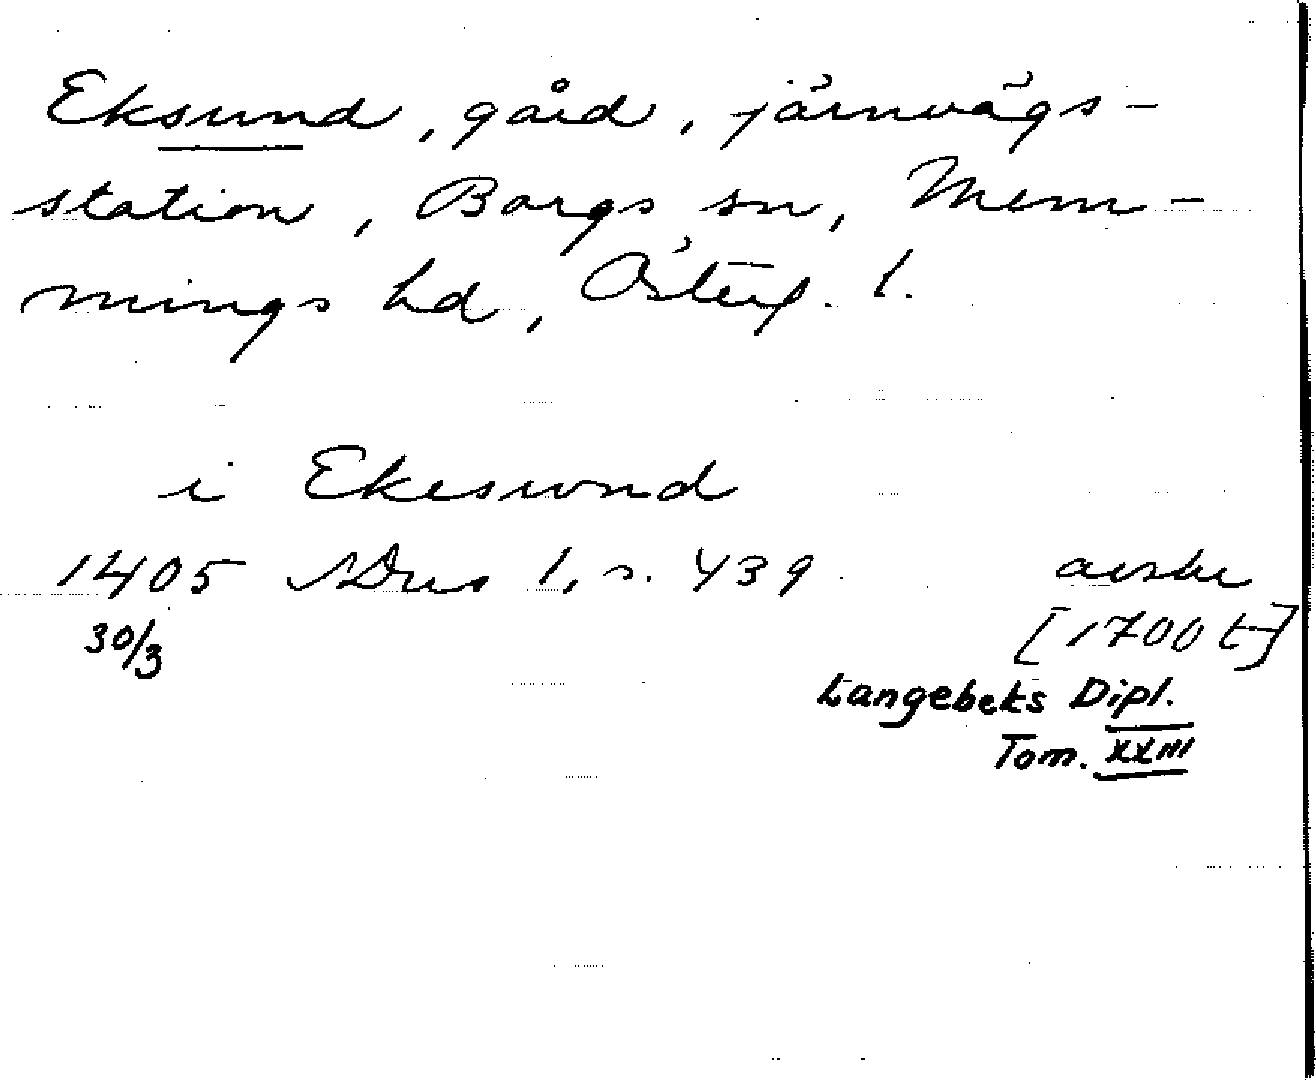 Eksund, gård, järnvägs-
station, Borgs sn, Mem-
mings hd, Österg. l.
i Ekesund
1405 SDns 1, s. 439 avskr
30/3 [1700 t]
Langebeks Dipl.
Tom. XXIII